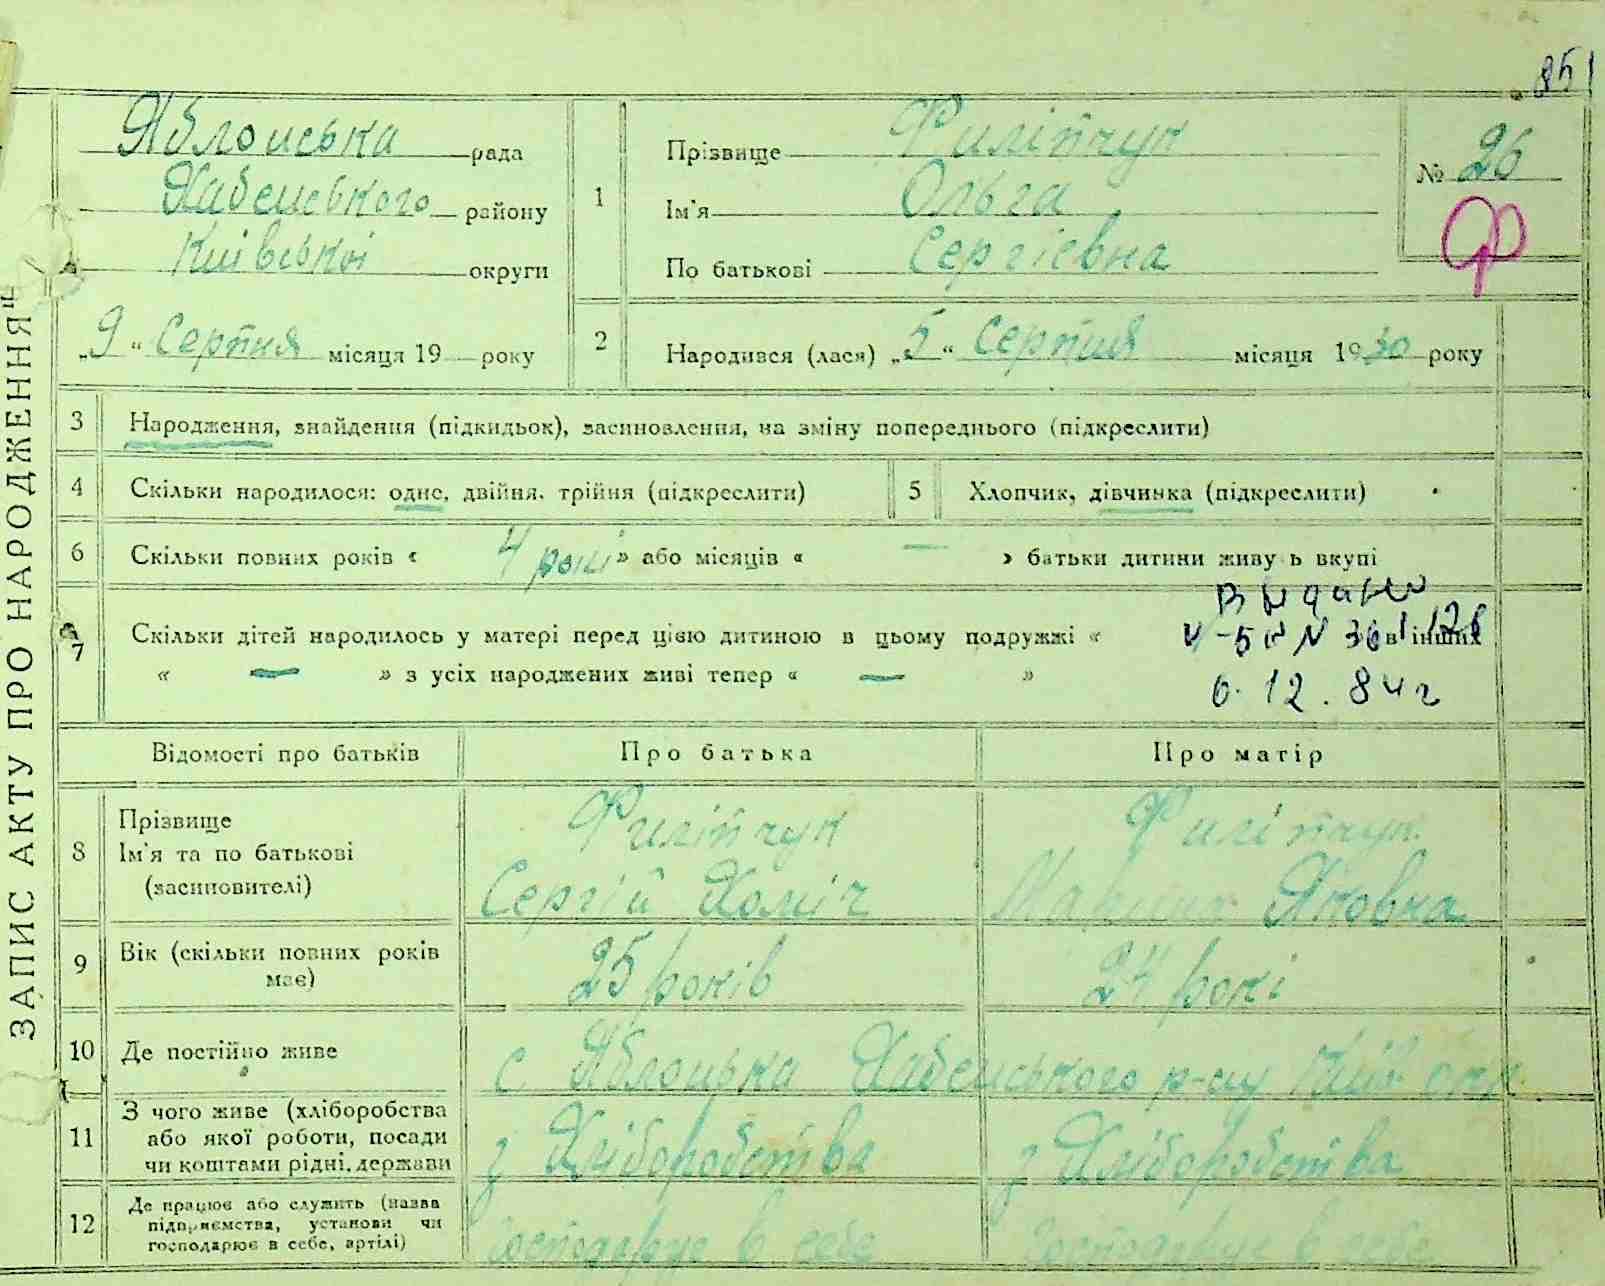 851
ЗАПИС АКТУ ПРО НАРОДЖЕННЯ"
Яблонська рада
Хабенського району
Київської округи
„9“ Серпня місяця 19 року
1
Прізвище Филіпчук
Ім'я Ольга
По батькові Сергієвна
№ 26
2
Народився (лася) „5“ Серпня місяця 1930 року
3 Народження, знайдення (підкидьок), засиновлення, на зміну попереднього (підкреслити)
4 Скільки народилося: одне, двійня, трійня (підкреслити)
5 Хлопчик, дівчинка (підкреслити)
6 Скільки повних років « 4 рокі » або місяців « — » батьки дитини живу ь вкупі
7 Скільки дітей народилось у матері перед цією дитиною в цьому подружжі « в інших
« — » з усіх народжених живі тепер « — »
6.12.84г
Відомості про батьків Про батька Про матір
8 Прізвище
Ім'я та по батькові
(засиновителі)
Филіпчук
Сергій Хоміч
Филіпчук
Яковна
9 Вік (скільки повних років
має)
25 років
24 рокі
10 Де постійно живе
с. Яблонька Хабенського р-ну Київ. окр.
11 З чого живе (хліборобства
або якої роботи, посади
чи коштами рідні, держави
з Хліборобства
з Хліборобства
12 Де працює або служить (назва
підприємства, установи чи
господарює в себе, артілі)
Господарує в себе
Господарує в себе